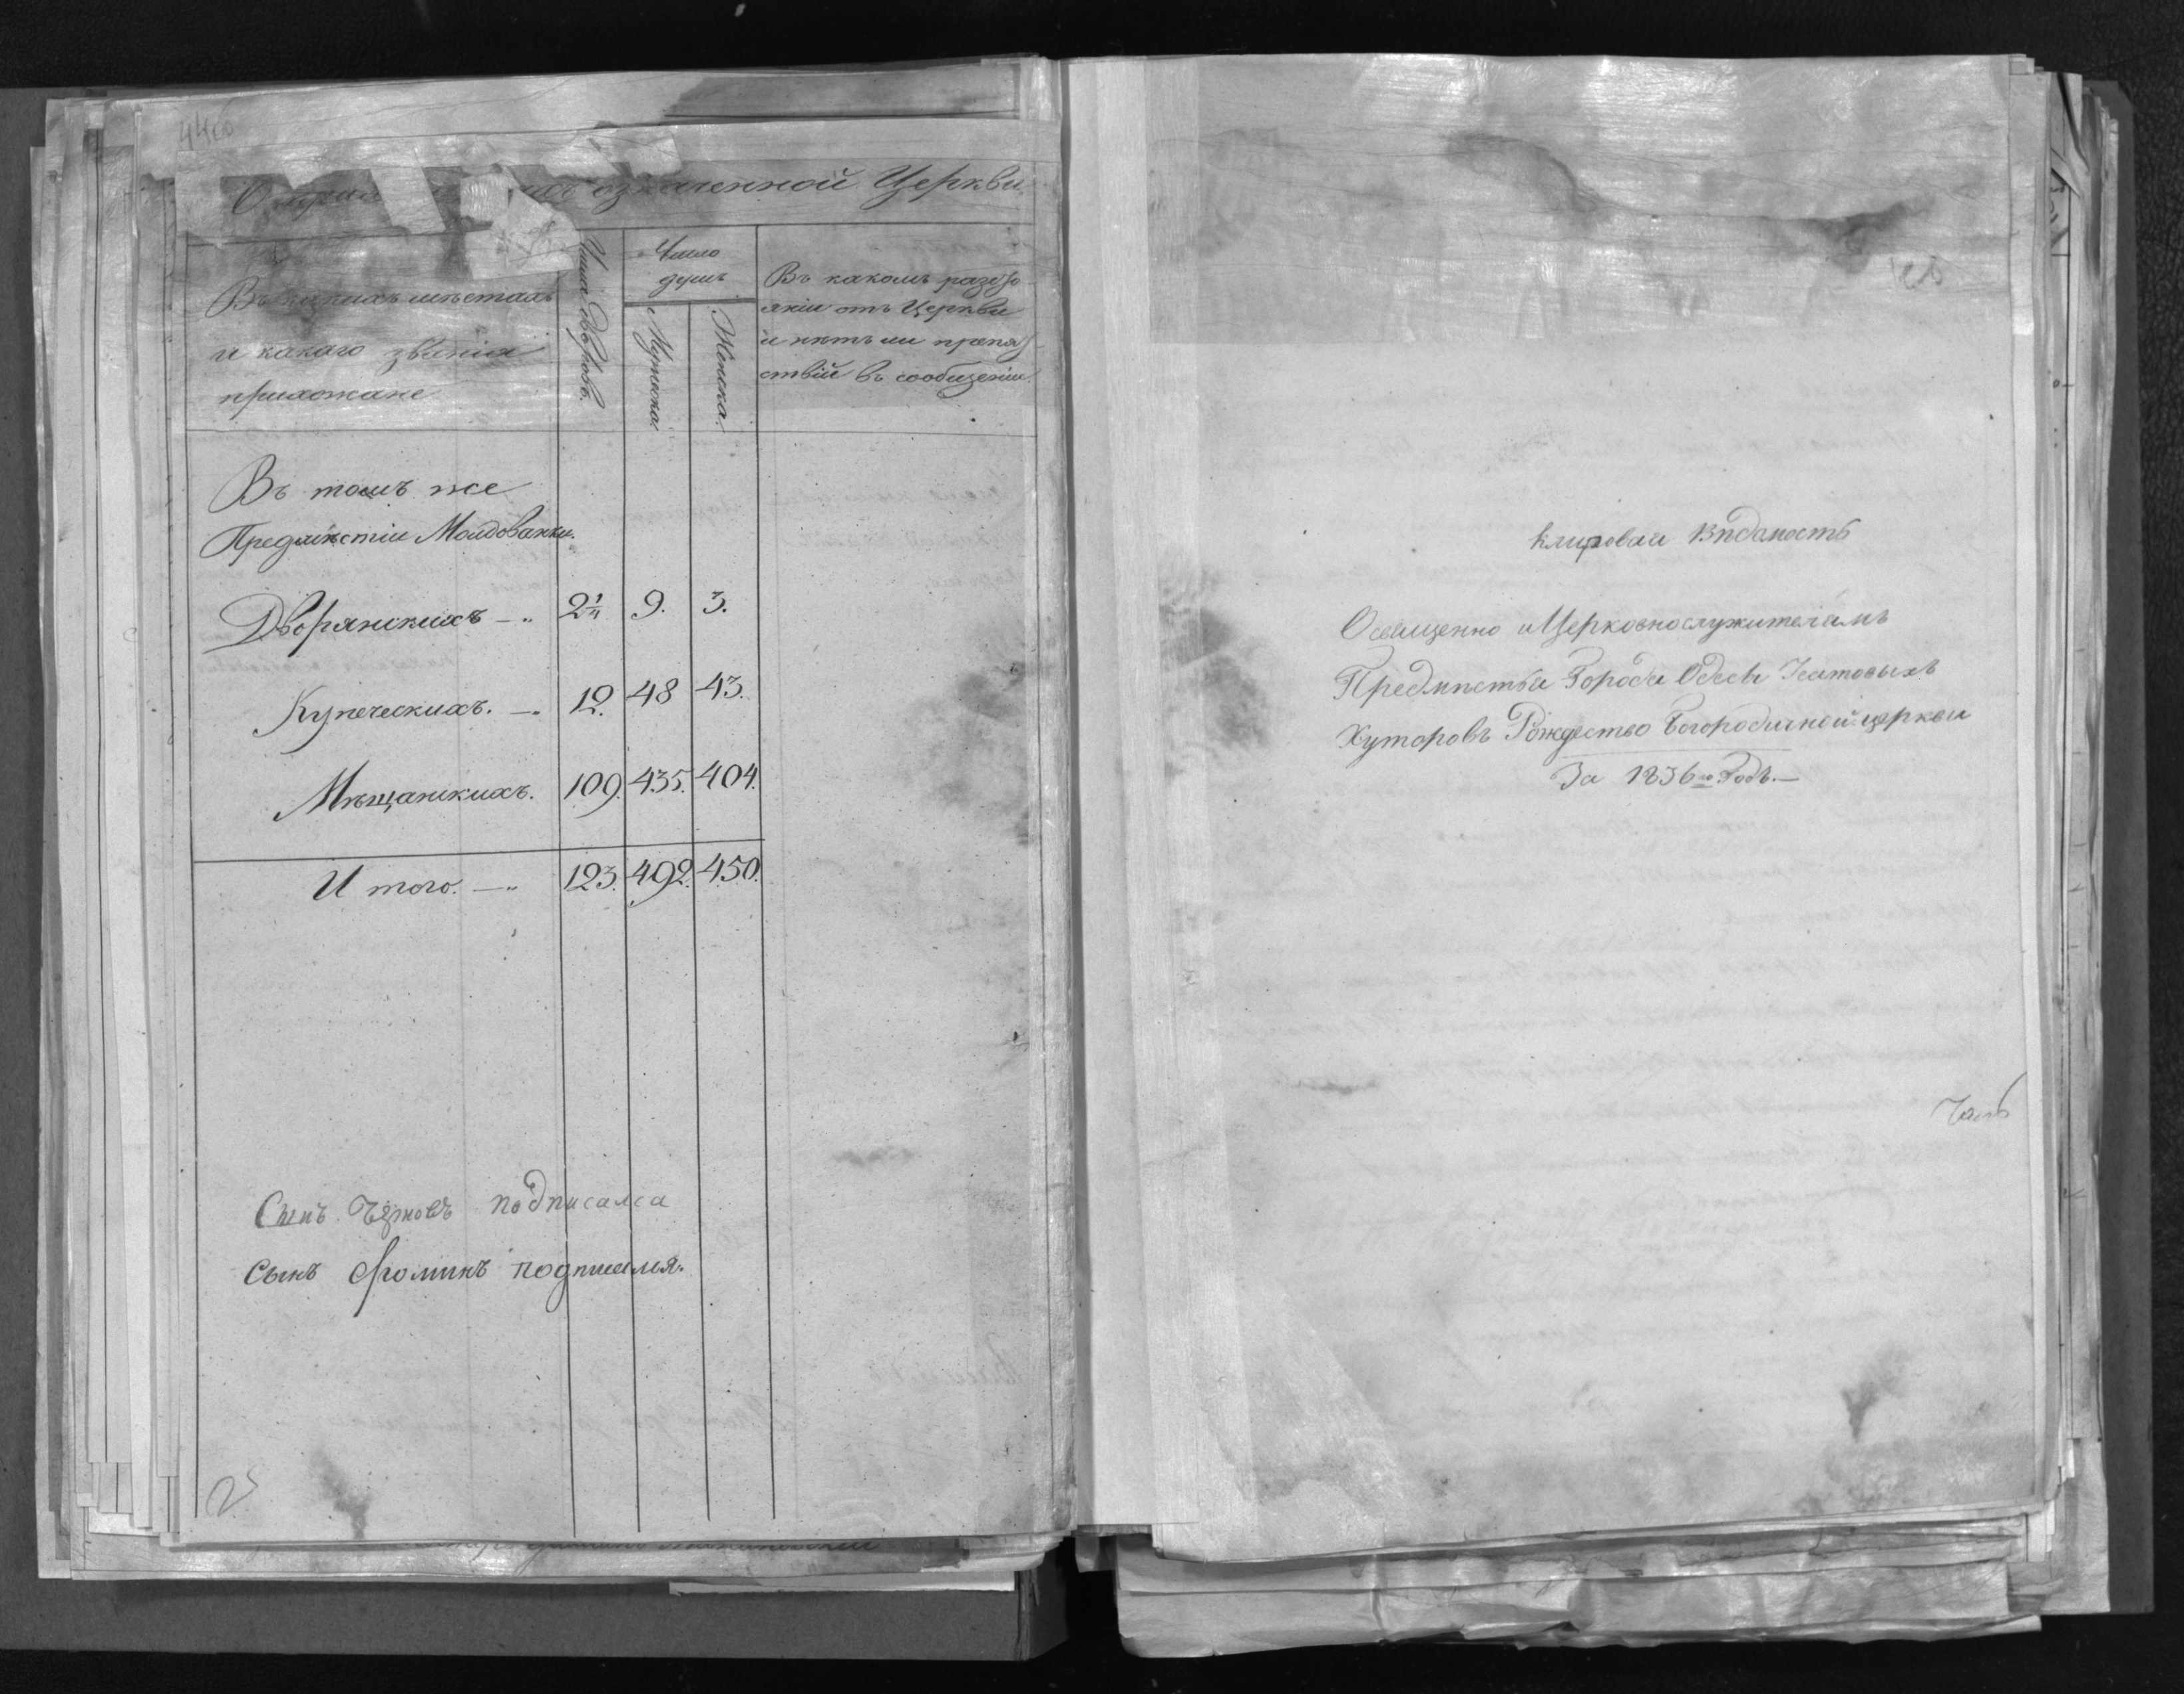 означенной Церкви
Въ какихъ мѣстахъ
и какаго званія
прихожане
Число Дворовъ.
Число
душъ
Мужска
Женска.
Въ какомъ разсто
яніи отъ Церкви
и нѣтъ ли препят
ствій въ сообщеніи.
Въ томъ же
Предмѣстіи Молдованки.
Дворянскихъ — 2 9. 3.
Купеческихъ. — 12. 48 43.
Мѣщанскихъ. 109. 435. 404.
И того. — 123. 492. 450.
подписался
Сынъ Фоминъ подписался.
Клировая Вѣдомость
Освященно и Церковнослужителямъ
Предмѣстья Города Одессы Усатовыхъ
Хуторовъ Рождество Богородичной церкви
За 1836й Годъ.—